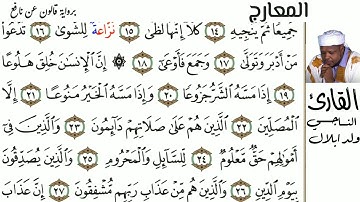 المعارج
برواية قالون عن نافع
جَمِيعًا ثُمَّ يُنجِيهِ ١٤ كَلَّا إِنَّهَا لَظَىٰ ١٥ نَزَّاعَةٌ لِّلشَّوَىٰ ١٦ تَدْعُواْ
مَنْ أَدْبَرَ وَتَوَلَّىٰ ١٧ وَجَمَعَ فَأَوْعَىٰ ١٨ ۞ إِنَّ ٱلْإِنسَٰنَ خُلِقَ هَلُوعًا
١٩ إِذَا مَسَّهُ ٱلشَّرُّ جَزُوعًا ٢٠ وَإِذَا مَسَّهُ ٱلْخَيْرُ مَنُوعًا ٢١ إِلَّا
ٱلْمُصَلِّينَ ٢٢ ٱلَّذِينَ هُمْ عَلَىٰ صَلَاتِهِمْ دَآئِمُونَ ٢٣ وَٱلَّذِينَ فِي
أَمْوَٰلِهِمْ حَقٌّ مَّعْلُومٌ ٢٤ لِّلسَّآئِلِ وَٱلْمَحْرُومِ ٢٥ وَٱلَّذِينَ يُصَدِّقُونَ
بِيَوْمِ ٱلدِّينِ ٢٦ وَٱلَّذِينَ هُم مِّنْ عَذَابِ رَبِّهِم مُّشْفِقُونَ ٢٧ إِنَّ عَذَابَ
القارئ
الناجي
ولد ابلال